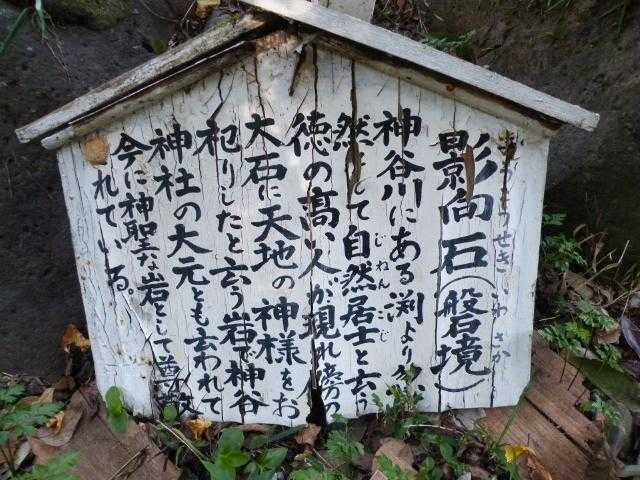 影向石(磐境)
ようごうせき いわさか
神谷川にある渕より忽
然として自然居士と云う
じねんこじ
徳の高い人が現れ傍の
大石に天地の神様をお
祀りしたと云う岩で神谷
神社の大元とも云われて
今に神聖な岩として尊敬
れている。